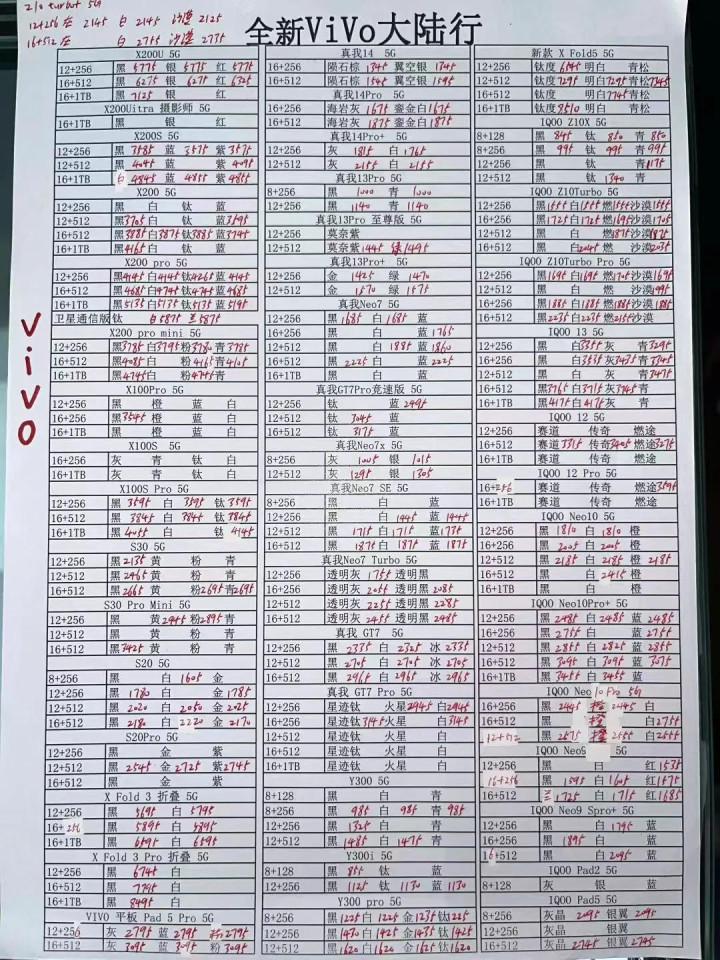 Z10 turbot 5G
12+256 灰 2145 白 2145 沙漠 2125
16+512 灰 白 2755 沙漠 2735
全新ViVo大陆行
ViVO
X200U 5G
12+256 黑 5775 银 5775 红 5775
16+512 黑 6275 银 6275 红 6325
16+1TB 黑 7125 银 红
X200Uitra 摄影师 5G
16+1TB 黑 银 红
X200S 5G
12+256 黑 3585 蓝 3575 紫 3575
12+512 黑 4045 蓝 紫 4095
16+1TB 白 4845 蓝 4855 紫 4855
X200 5G
12+256 黑 白 钛 蓝
12+512 黑3705 白 钛 蓝3595
16+512 黑3885 白3875 钛3885 蓝3745
16+1TB 黑4165 白 钛 蓝
X200 pro 5G
12+256 黑4145 白4145 钛4265 蓝 4145
16+512 黑4685 白4745 钛4745 蓝4685
16+1TB 黑5135 白5135 钛5135 蓝5195
卫星通信版 钛 白5875 兰5875
X200 pro mini 5G
12+256 黑3785 白3795 粉3780 青3785
16+512 黑4085 白 粉4165 青4105
16+1TB 黑4745 白 粉4745 青
X100Pro 5G
12+256 黑 橙 蓝 白
16+256 黑3545 橙 蓝 白
16+1TB 黑 橙 蓝 白
X100S 5G
16+256 灰 青 钛 白
16+1TB 灰 青 钛 白
X100S Pro 5G
12+256 黑 3595 白 3595 钛 3595
16+512 黑 3845 白 3845 钛 3845
16+1TB 黑 4055 白 钛 4145
S30 5G
12+256 黑 2135 黄 粉 青
12+512 黑 2465 黄 粉 青
16+512 黑 2665 黄 粉 2695 青2695
S30 Pro Mini 5G
12+256 黑 黄 2945 粉 2895 青
12+512 黑 黄 粉 青
16+512 黑3425 黄 粉 青
S20 5G
8+256 黑 白 1605 金
12+256 黑 1780 白 金 1785
12+512 黑 2020 白 2050 金 2025
16+512 黑 2180 白 2220 金 2170
S20Pro 5G
12+256 黑 金 紫
12+512 黑 2545 金 2725 紫2745
16+512 黑 金 紫
X Fold 3 折叠 5G
12+256 黑 5695 白 5795
16+256 黑 5895 白 5895
16+1TB 黑 6595 白 6595
X Fold 3 Pro 折叠 5G
12+256 黑 6745 白
16+512 黑 7795 白
16+1TB 黑 8495 白
VIVO 平板 Pad 5 Pro 5G
12+256 灰 2795 蓝 2795 粉2795
16+512 灰 3095 蓝 3095 粉 3095
真我14 5G
12+256 陨石棕 1345 翼空银 1345
16+512 陨石棕 1545 翼空银 1595
真我14Pro 5G
16+256 海岩灰 1675 銮金白1675
16+512 海岩灰 1875 銮金白1875
真我14Pro+ 5G
12+256 灰 1815 白 1765
12+512 灰 2155 白 2155
真我13Pro 5G
8+256 黑 1000 青 1000
12+256 黑 1140 青 1140
真我13Pro 至尊版 5G
12+256 莫奈紫
12+512 莫奈紫1445 绿1495
真我13Pro+ 5G
12+256 金 1425 绿 1470
12+512 金 1570 绿 1575
真我Neo7 5G
12+256 黑 1685 白 1685 蓝
16+256 黑 白 蓝 1765
12+512 黑 白 1885 蓝1860
16+512 黑 2225 白 蓝 2225
16+1TB 黑 白 蓝
真我GT7Pro竞速版 5G
12+256 钛 蓝 2495
12+512 钛 3045 蓝
16+512 钛 3175 蓝
真我Neo7x 5G
8+256 灰 1005 银 1015
12+512 灰 1295 银 1305
真我Neo7 SE 5G
8+256 黑 白 蓝
12+256 黑 白 1445 蓝 1445
12+512 黑 1715 白 1715 蓝1735
16+512 黑 1875 白 1875 蓝 1875
真我Neo7 Turbo 5G
12+256 透明灰 1755 透明黑
16+256 透明灰 2055 透明黑 2085
12+512 透明灰 2255 透明黑 2285
16+512 透明灰 2455 透明黑 2485
真我 GT7 5G
12+256 黑 2335 白 2325 冰 2335
12+512 黑 2705 白 2705 冰 2705
16+512 黑 2965 白 2965 冰 2965
真我 GT7 Pro 5G
12+256 星迹钛 火星2945 白2945
16+256 星迹钛3145 火星 白3145
16+512 星迹钛 火星 白
16+1TB 星迹钛 火星 白
Y300 5G
8+128 黑 白 青
8+256 黑 985 白 985 青 985
12+256 黑 1325 白 青
12+512 黑 1485 白 1475 青
Y300i 5G
8+128 黑 855 钛 蓝
12+256 黑 1125 钛 1130 蓝 1130
Y300 pro 5G
8+256 黑1225 白 1225 金1235 钛1225
12+256 黑1430 白1425 金1435 钛1425
12+512 黑1620 白1620 金1620 钛1620
新款 X Fold5 5G
12+256 钛度 6645 明白 青松
12+512 钛度 7295 明白7295 青松7345
16+512 钛度 明白7745 青松
16+1TB 钛度8510 明白 青松
IQOO Z10X 5G
8+128 黑 845 钛 850 青 850
8+256 黑 995 钛 995 青 995
12+256 黑 钛 青1175
12+512 黑 钛 1340 青
IQOO Z10Turbo 5G
12+256 黑1555 白1555 燃1555 沙漠1555
16+256 黑1725 白1725 燃1695 沙漠1705
12+512 黑 白 燃1875 沙漠1875
16+512 黑 白2045 燃 沙漠2035
IQOO Z10Turbo Pro 5G
12+256 黑1695 白1695 燃1705 沙漠1695
12+512 黑 白 燃 沙漠1995
16+256 黑1885 白1885 燃1885 沙漠1885
16+512 黑2235 白2235 燃2155 沙漠
IQOO 13 5G
12+256 黑 白3355 灰 青3295
16+256 黑 白3535 灰3435 青3345
12+512 黑 白 灰 青3475
16+512 黑3765 白3715 灰3745 青
16+1TB 黑4175 白4175 灰 青
IQOO 12 5G
12+256 赛道 传奇 燃途
16+512 赛道 3315 传奇3405 燃途3275
16+1TB 赛道 传奇 燃途
IQOO 12 Pro 5G
16+256 赛道 传奇 燃途3595
16+1TB 赛道 传奇 燃途
IQOO Neo10 5G
12+256 黑 1810 白 1810 橙
16+256 黑 2005 白 2005 橙
12+512 黑 2185 白 2185 橙 2185
16+512 黑 白 2415 橙
16+1TB 黑 白 橙
IQOO Neo10Pro+ 5G
12+256 黑 2485 白 2485 蓝 2485
16+256 黑 2755 白 蓝 2755
12+512 黑 2855 白 2825 蓝 2855
16+512 黑 3095 白 3095 蓝 3075
16+1TB 黑 3455 白 3455 蓝
IQOO Neo10 Pro 5G
16+256 黑 2445 橙 2445 白
16+512 黑 橙 白2755
12+512 黑 2575 橙 2555 白2555
IQOO Neo9 5G
12+256 黑 白 红1535
16+256 黑 1595 白1605 红1575
16+512 兰 1725 白 1715 红1685
IQOO Neo9 Spro+ 5G
12+256 黑 白 1745 蓝
16+256 黑 1895 白 蓝
16+512 黑 白 2095 蓝
IQOO Pad2 5G
8+128 灰 银 蓝
IQOO Pad5 5G
8+256 灰晶 2095 银翼 2095
12+256 灰晶 银翼
16+512 灰晶 2745 银翼 2745